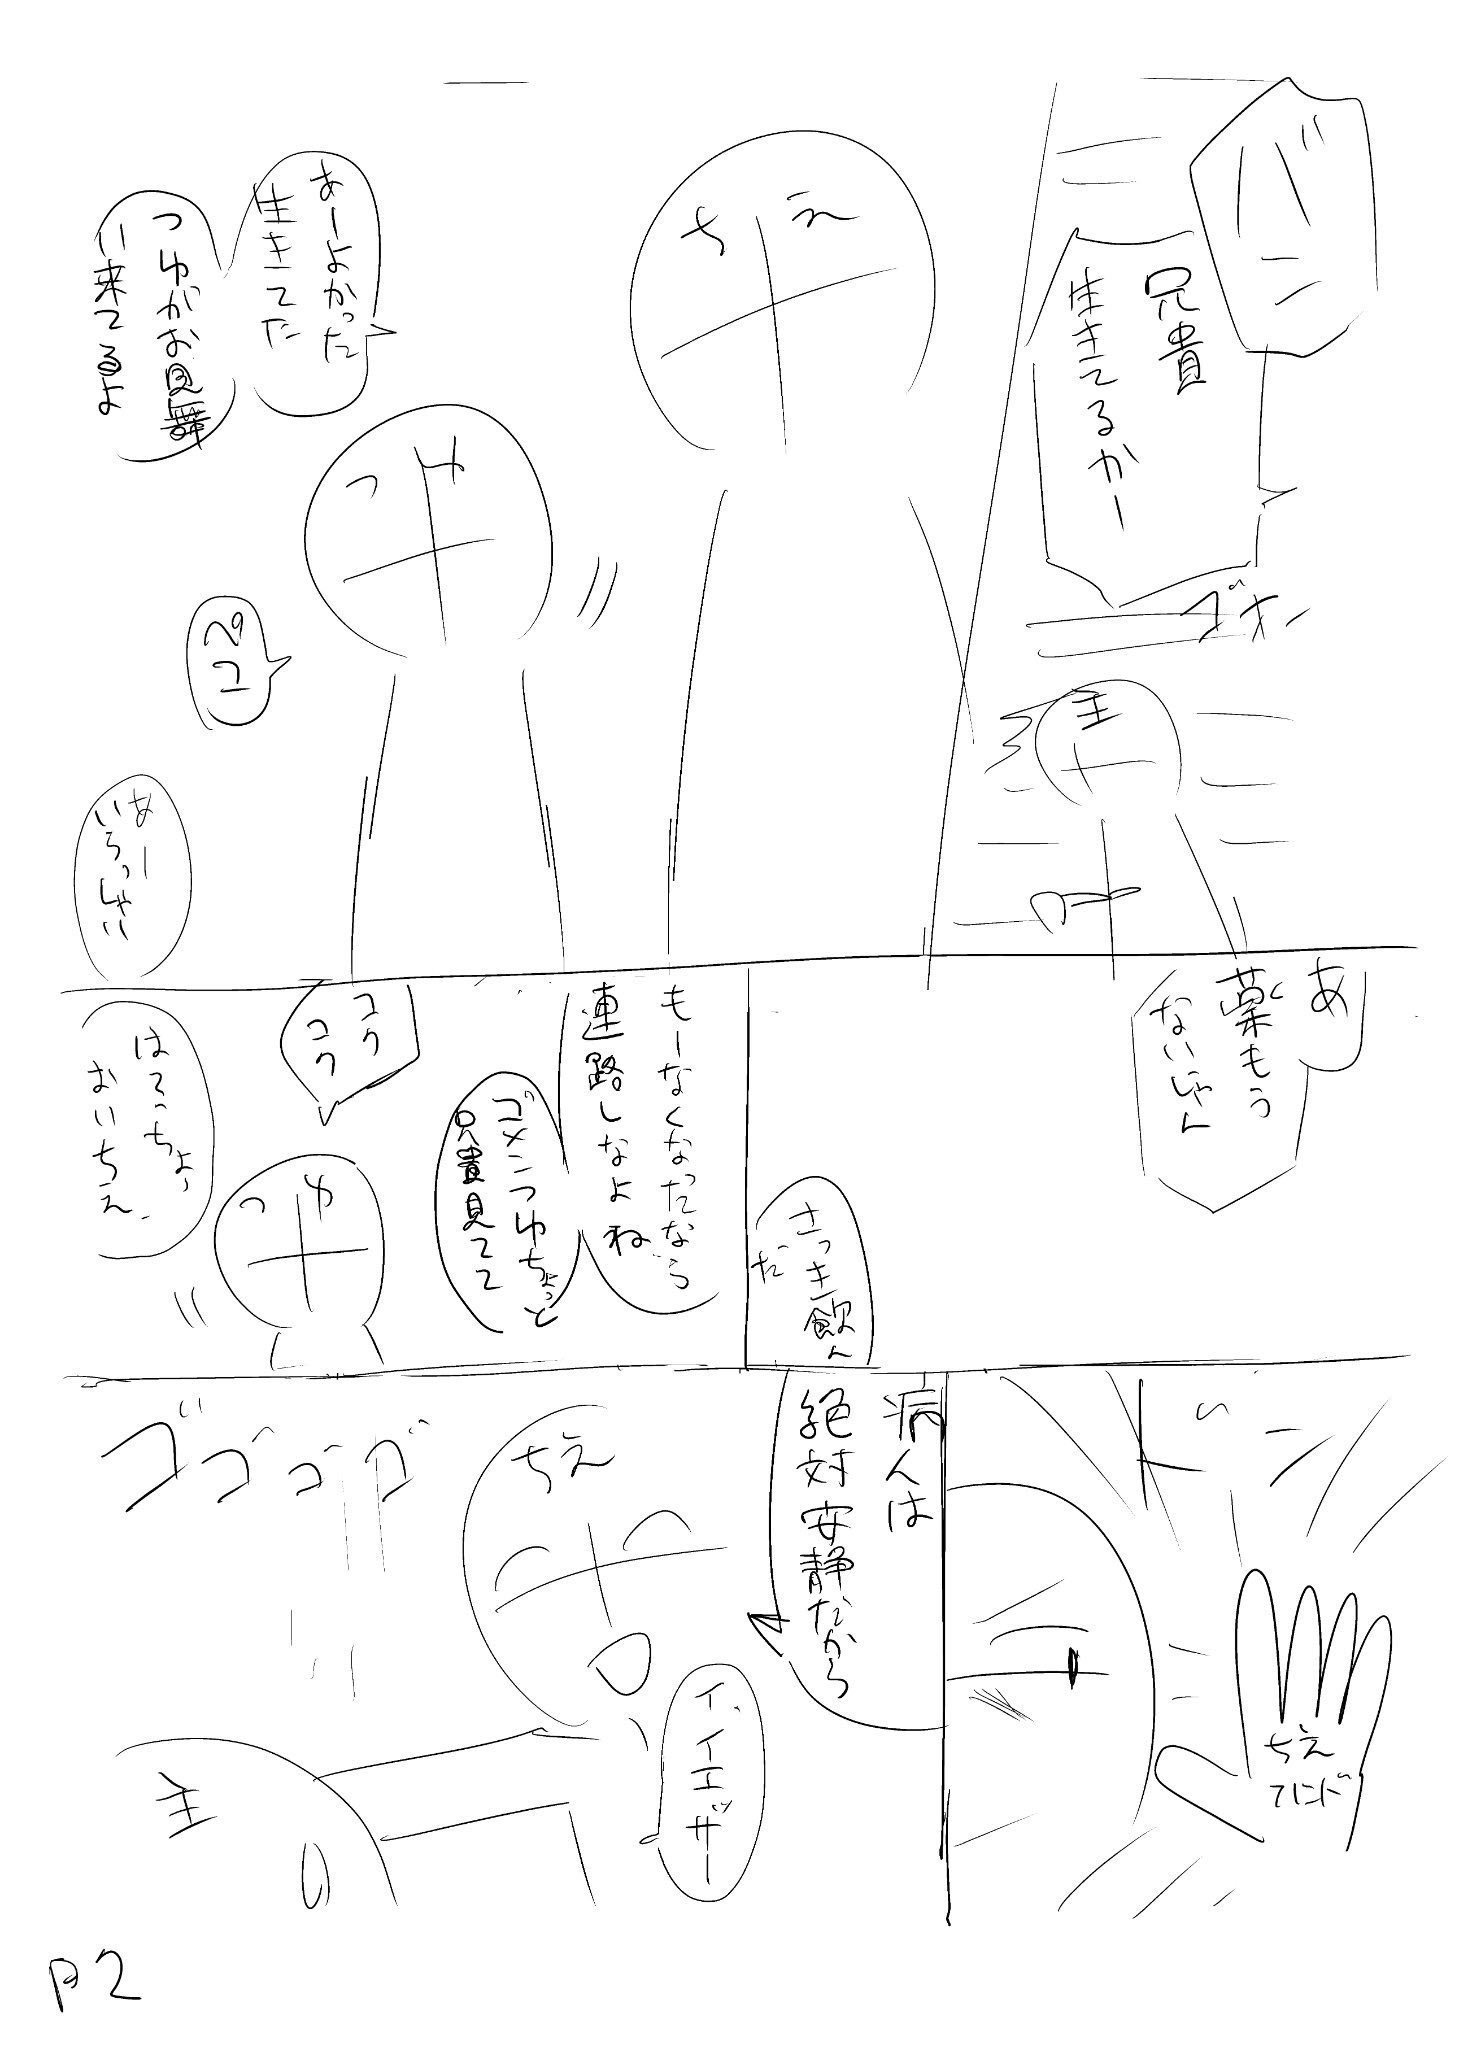 バーン
兄貴
生きてるかー
ゴォン
主
ちえ
あーよかった
生きてた
つゆがお見舞
い来てるよ
つゆ
ペコ
あー
いらっしゃい
あ
薬もう
ないじゃん
さっき飲ん
だ
もーなくなったなら
連路しなよね
ゴメンつゆちょっと
兄貴見てて
コク
コク
つゆ
はてっちょっ
おいちえ
ドーン
ちえ
ハンド
病人は
絶対安静だから
ちえ
イ、イエッサー
ゴゴゴゴ
主
P2